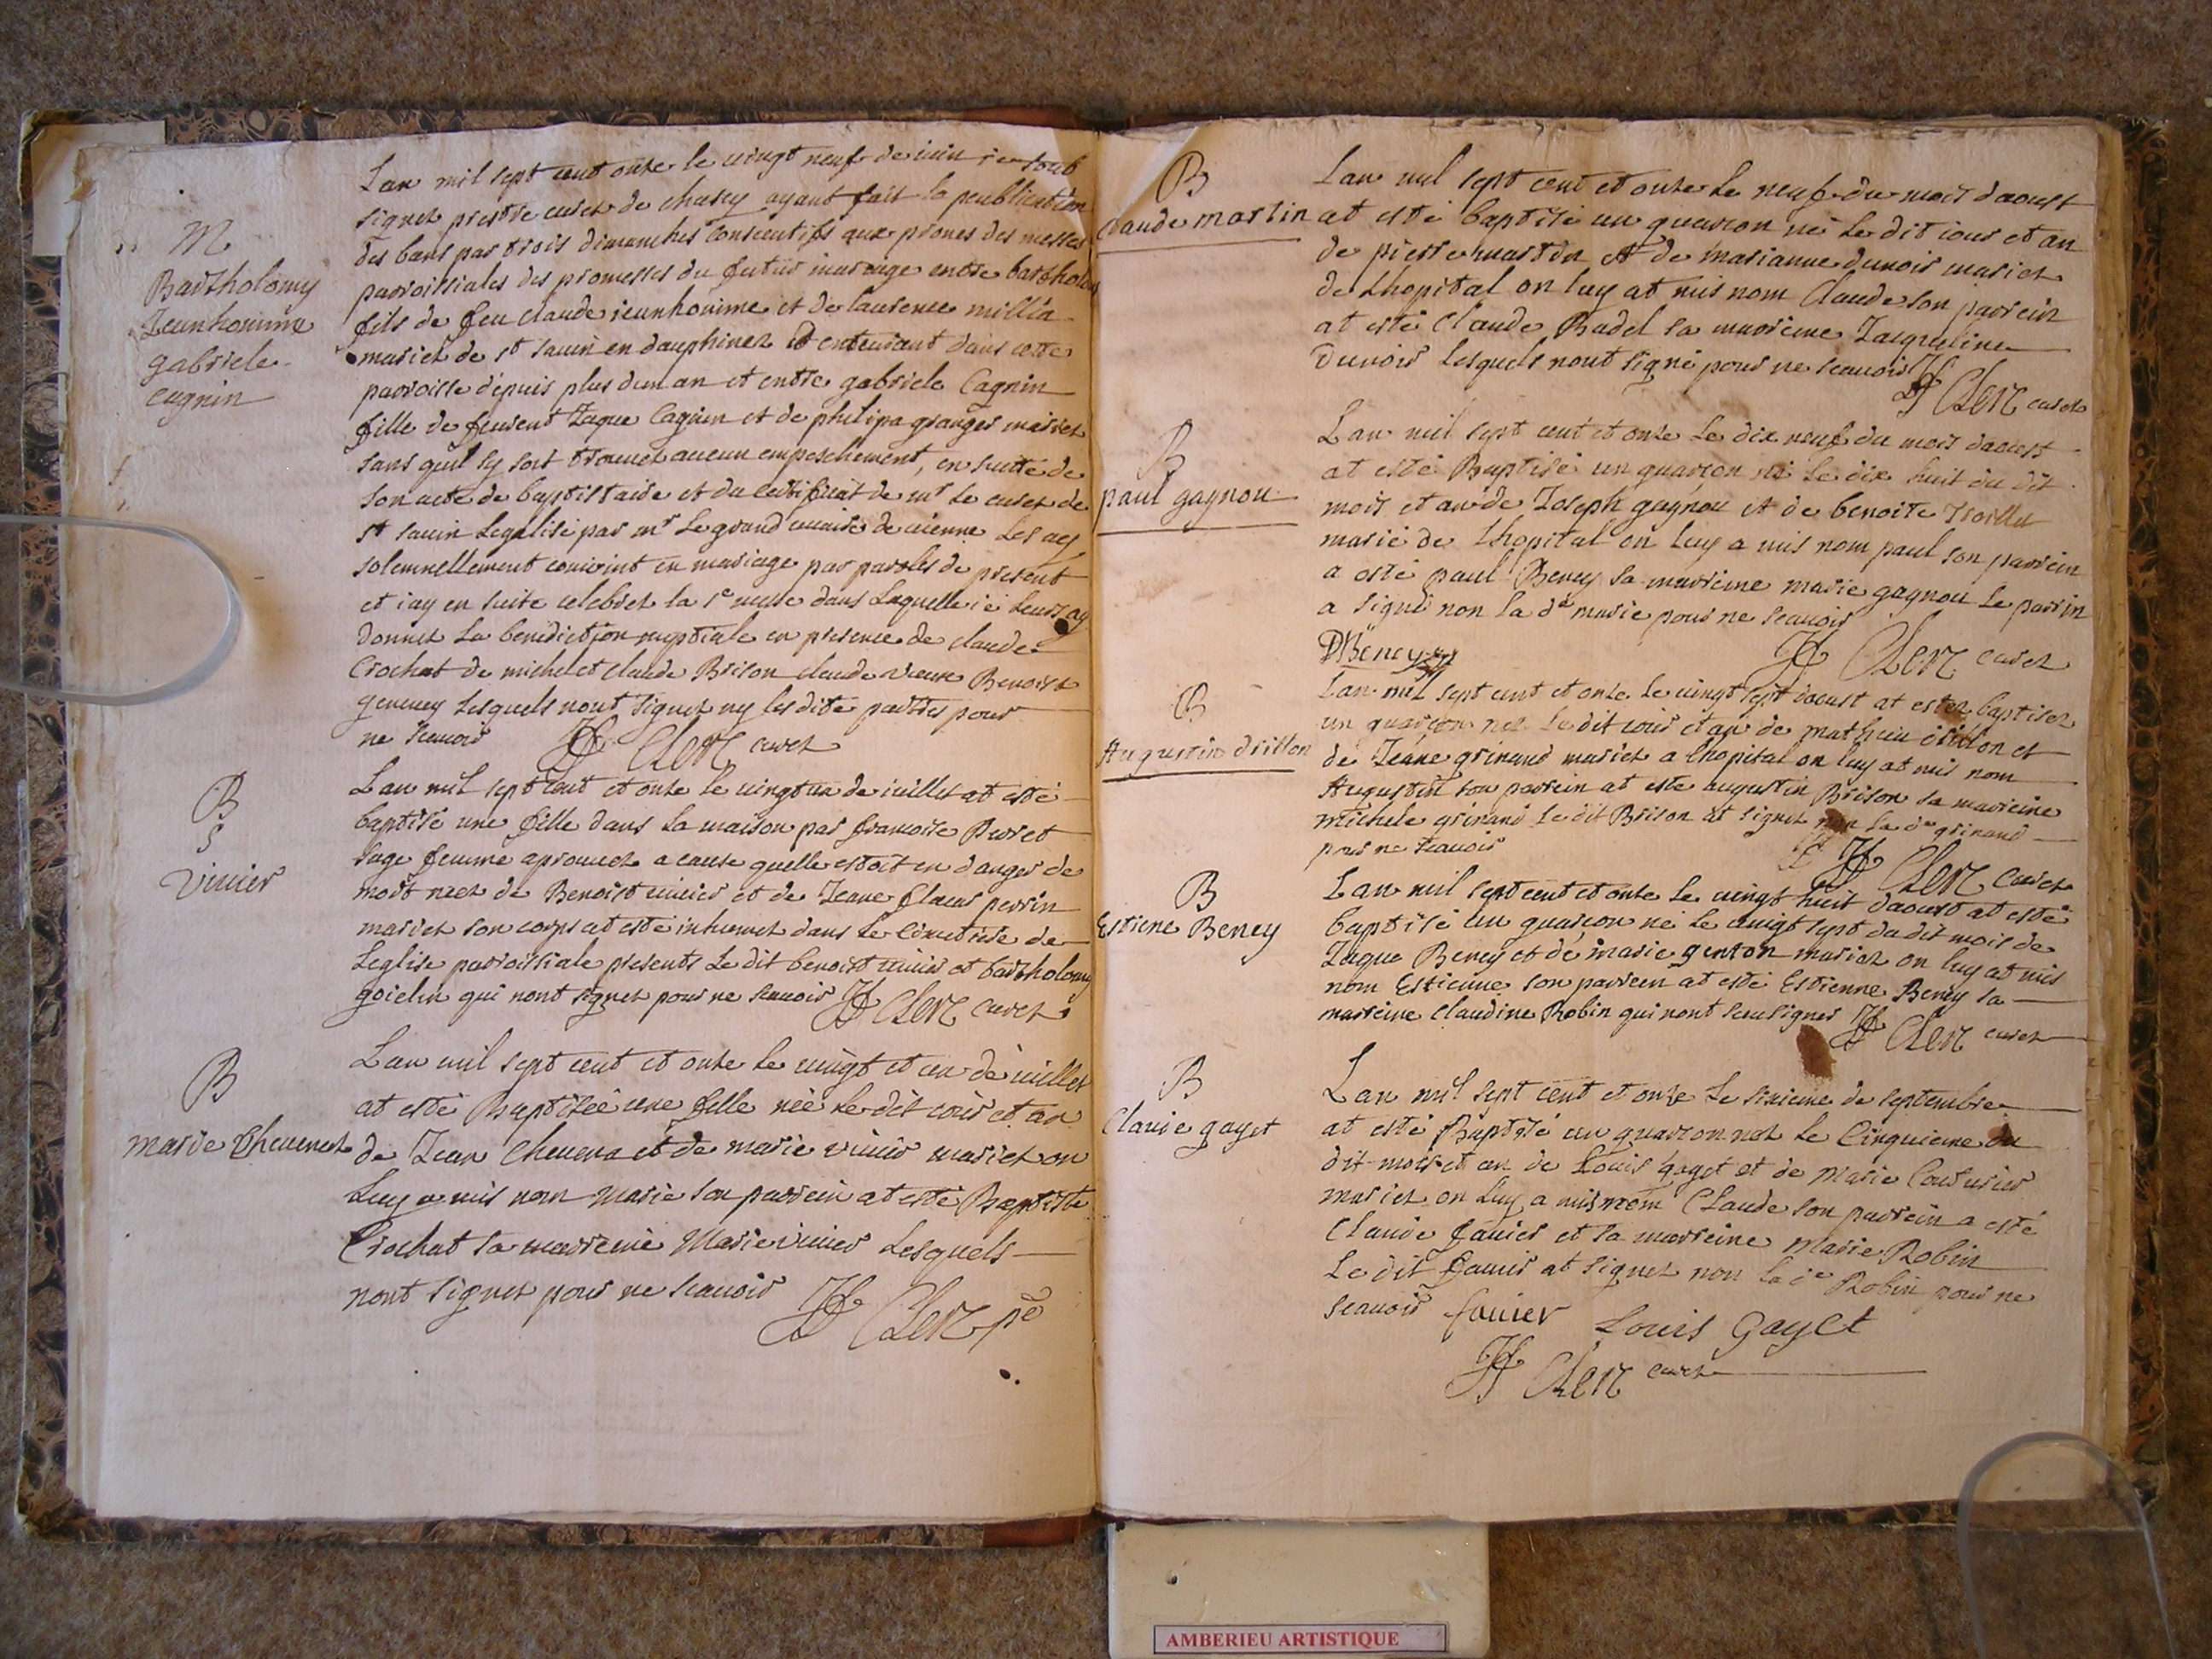 M
Bartholomy
Jeunhomme
gabriele
cagnin
Lan mil sept cent onze le vingt neuf de iuin ie soub
signez prestre curez de chasey ayant fait la peublication
des bans par trois dimanches consecutifs aux prones des messes
parroissiales des promesses du futur mariage entre bartholomy
fils de feu claude ieunhomme et de laurence millia
mariez de st savin en dauphinez et demeurant dans cette
parroisse depuis plus dun an et entre gabriele Cagnin
fille de Jaque Cagnin et de philipa granges mariez
sans quil sy soit trouvez aucun empeschement, en suitte de
son acte de baptistaire et du certificat de mr le curez de
st savin Legalisé par mr Le grand vicaire de vienne Les ay
solemnellement conioint en mariage par paroles de present
et iay en suite celebrez la se messe dans Laquelle ie leurs ay
donnez La benediction nuptiale en presence de claude
Crochat de michel et claude Brison claude vieux Benoist
geneney Lesquels nont signez ny les dite parties pour
ne scavoir JF Clerc curez
B
S
Vivier
Lan mil sept cent et onze le vingt un de iuillet at esté
baptisé une fille dans La maison par francoise Purret
sage femme aprouvez a cause quelle estoit en danger de
mort neez de Benoist vivier et de Jeane perrin
mariez son corps at esté inhumez dans Le Cimetiere de
Leglise parroissiale presents Le dit benoist vivier et bartholomy
goielin qui nont signez pour ne scavoir JF Clerc curez
B
Marie Chevenet
Lan mil sept cent et onze Le vingt et un de iuillet
at esté Baptizée une fille née Le dit iour et an
de Jean Chevena et de marie vivier mariez on
Luy a mis nom Marie son parrein at esté Baptiste
Crochat sa marreine Marie vivier Lesquels
nont signez pour ne scavoir JF Clerc pe
B
Claude martin
Lan mil sept cent et onze Le neuf du mois daoust
at esté baptisé un guarcon né Le dit iour et an
de pierre martin et de marianne dunoir mariez
de Lhopital on luy at mis nom Claude son parrein
at esté Claude Badel sa marreine Jacqueline
Dunoir Lesquels nont signé pour ne scavoir
JF Clerc curez
B
paul gagnou
Lan mil sept cent et onze Le dix neuf du mois daoust
at esté Baptisé un guarcon né Le dix huit du dit
mois et an de Joseph gagnou et de benoite Troillet
marié de Lhopital on luy a mis nom paul son parrein
a esté paul Beney sa marreine marie gagnou Le parrin
a signé non la de marie pour ne scavoir
PBeney JF Clerc curez
B
Augustin drillon
Lan mil sept cent et onze Le vingt sept daoust at estez baptisez
un guarcon nez Le dit iour et an de mathieu drillon et
de Jeane grinand mariez a lhopital on luy at mis nom
Augustin son parrein at esté augustin Brison sa marreine
michele grinand Le dit Brison at signez non La de grinand
pour ne scavoir JF Clerc Curez
B
Estiene Beney
Lan mil sept cent et onze Le vingt huit daoust at esté
baptisé un guarcon né Le vingt sept du dit mois de
Jaque Beney et de marie genton mariez on luy at mis
nom Estienne son parrein at esté Estienne Beney sa
marreine Claudine Robin qui nont sceu signer JF Clerc curez
B
Claude gayet
Lan mil sept cent et onze Le sixieme de septembre
at esté Baptisé un guarcon nez Le Cinquieme du
dit mois et an de Louis gayet et de Marie Couturier
mariez on luy a mis nom Claude son parrein a esté
Claude favier et sa marreine Marie Robin
Le dit favier at signez non La de Robin pour ne
scavoir favier Louis Gayet
JF Clerc curez
AMBERIEU ARTISTIQUE